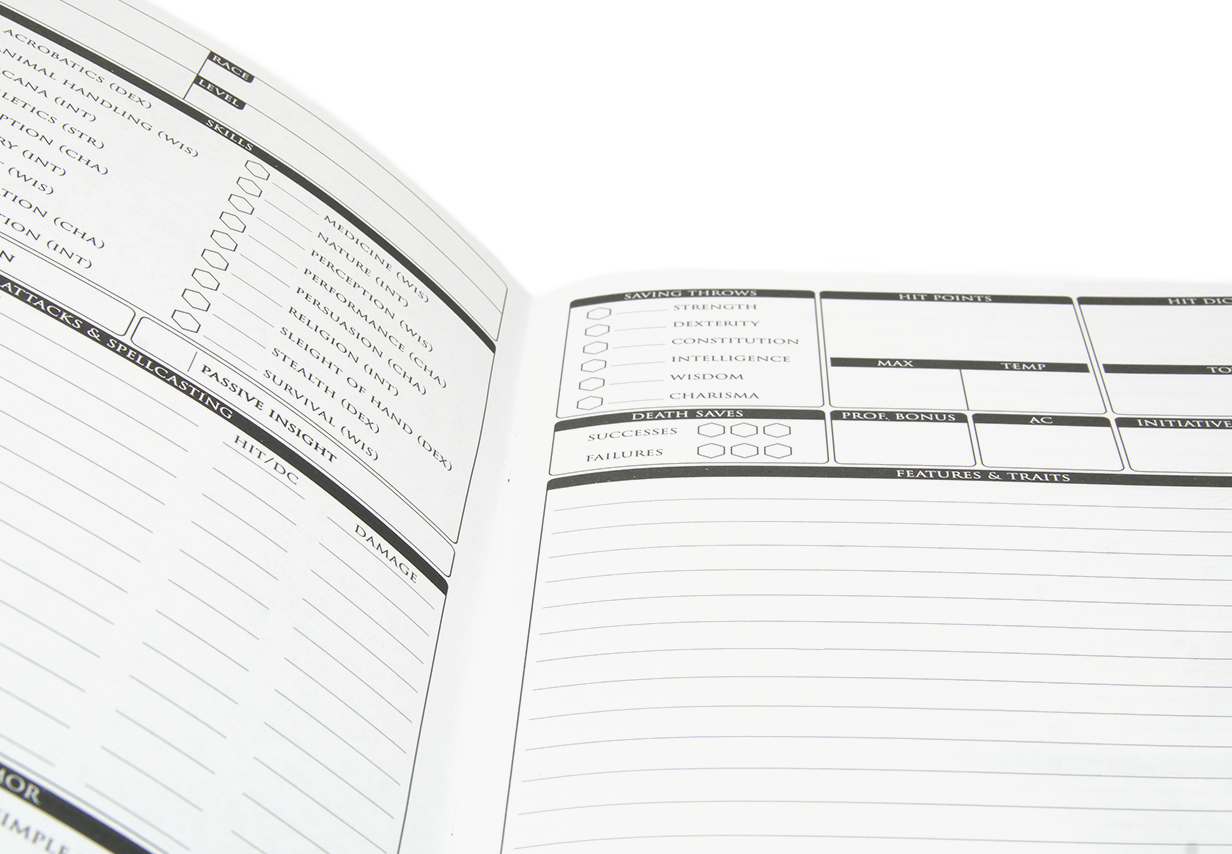 RACE
LEVEL
SKILLS
ACROBATICS (DEX)
ANIMAL HANDLING (WIS)
(INT)
(STR)
(CHA)
(INT)
(WIS)
(CHA)
(INT)
MEDICINE (WIS)
NATURE (INT)
PERCEPTION (WIS)
PERFORMANCE (CHA)
PERSUASION (CHA)
RELIGION (INT)
SLEIGHT OF HAND (DEX)
STEALTH (DEX)
SURVIVAL (WIS)
PASSIVE INSIGHT
ATTACKS & SPELLCASTING
HIT/DC
DAMAGE
SAVING THROWS
STRENGTH
DEXTERITY
CONSTITUTION
INTELLIGENCE
WISDOM
CHARISMA
HIT POINTS
MAX TEMP
HIT
DEATH SAVES
SUCCESSES
FAILURES
PROF. BONUS
AC
INITIATIVE
FEATURES & TRAITS